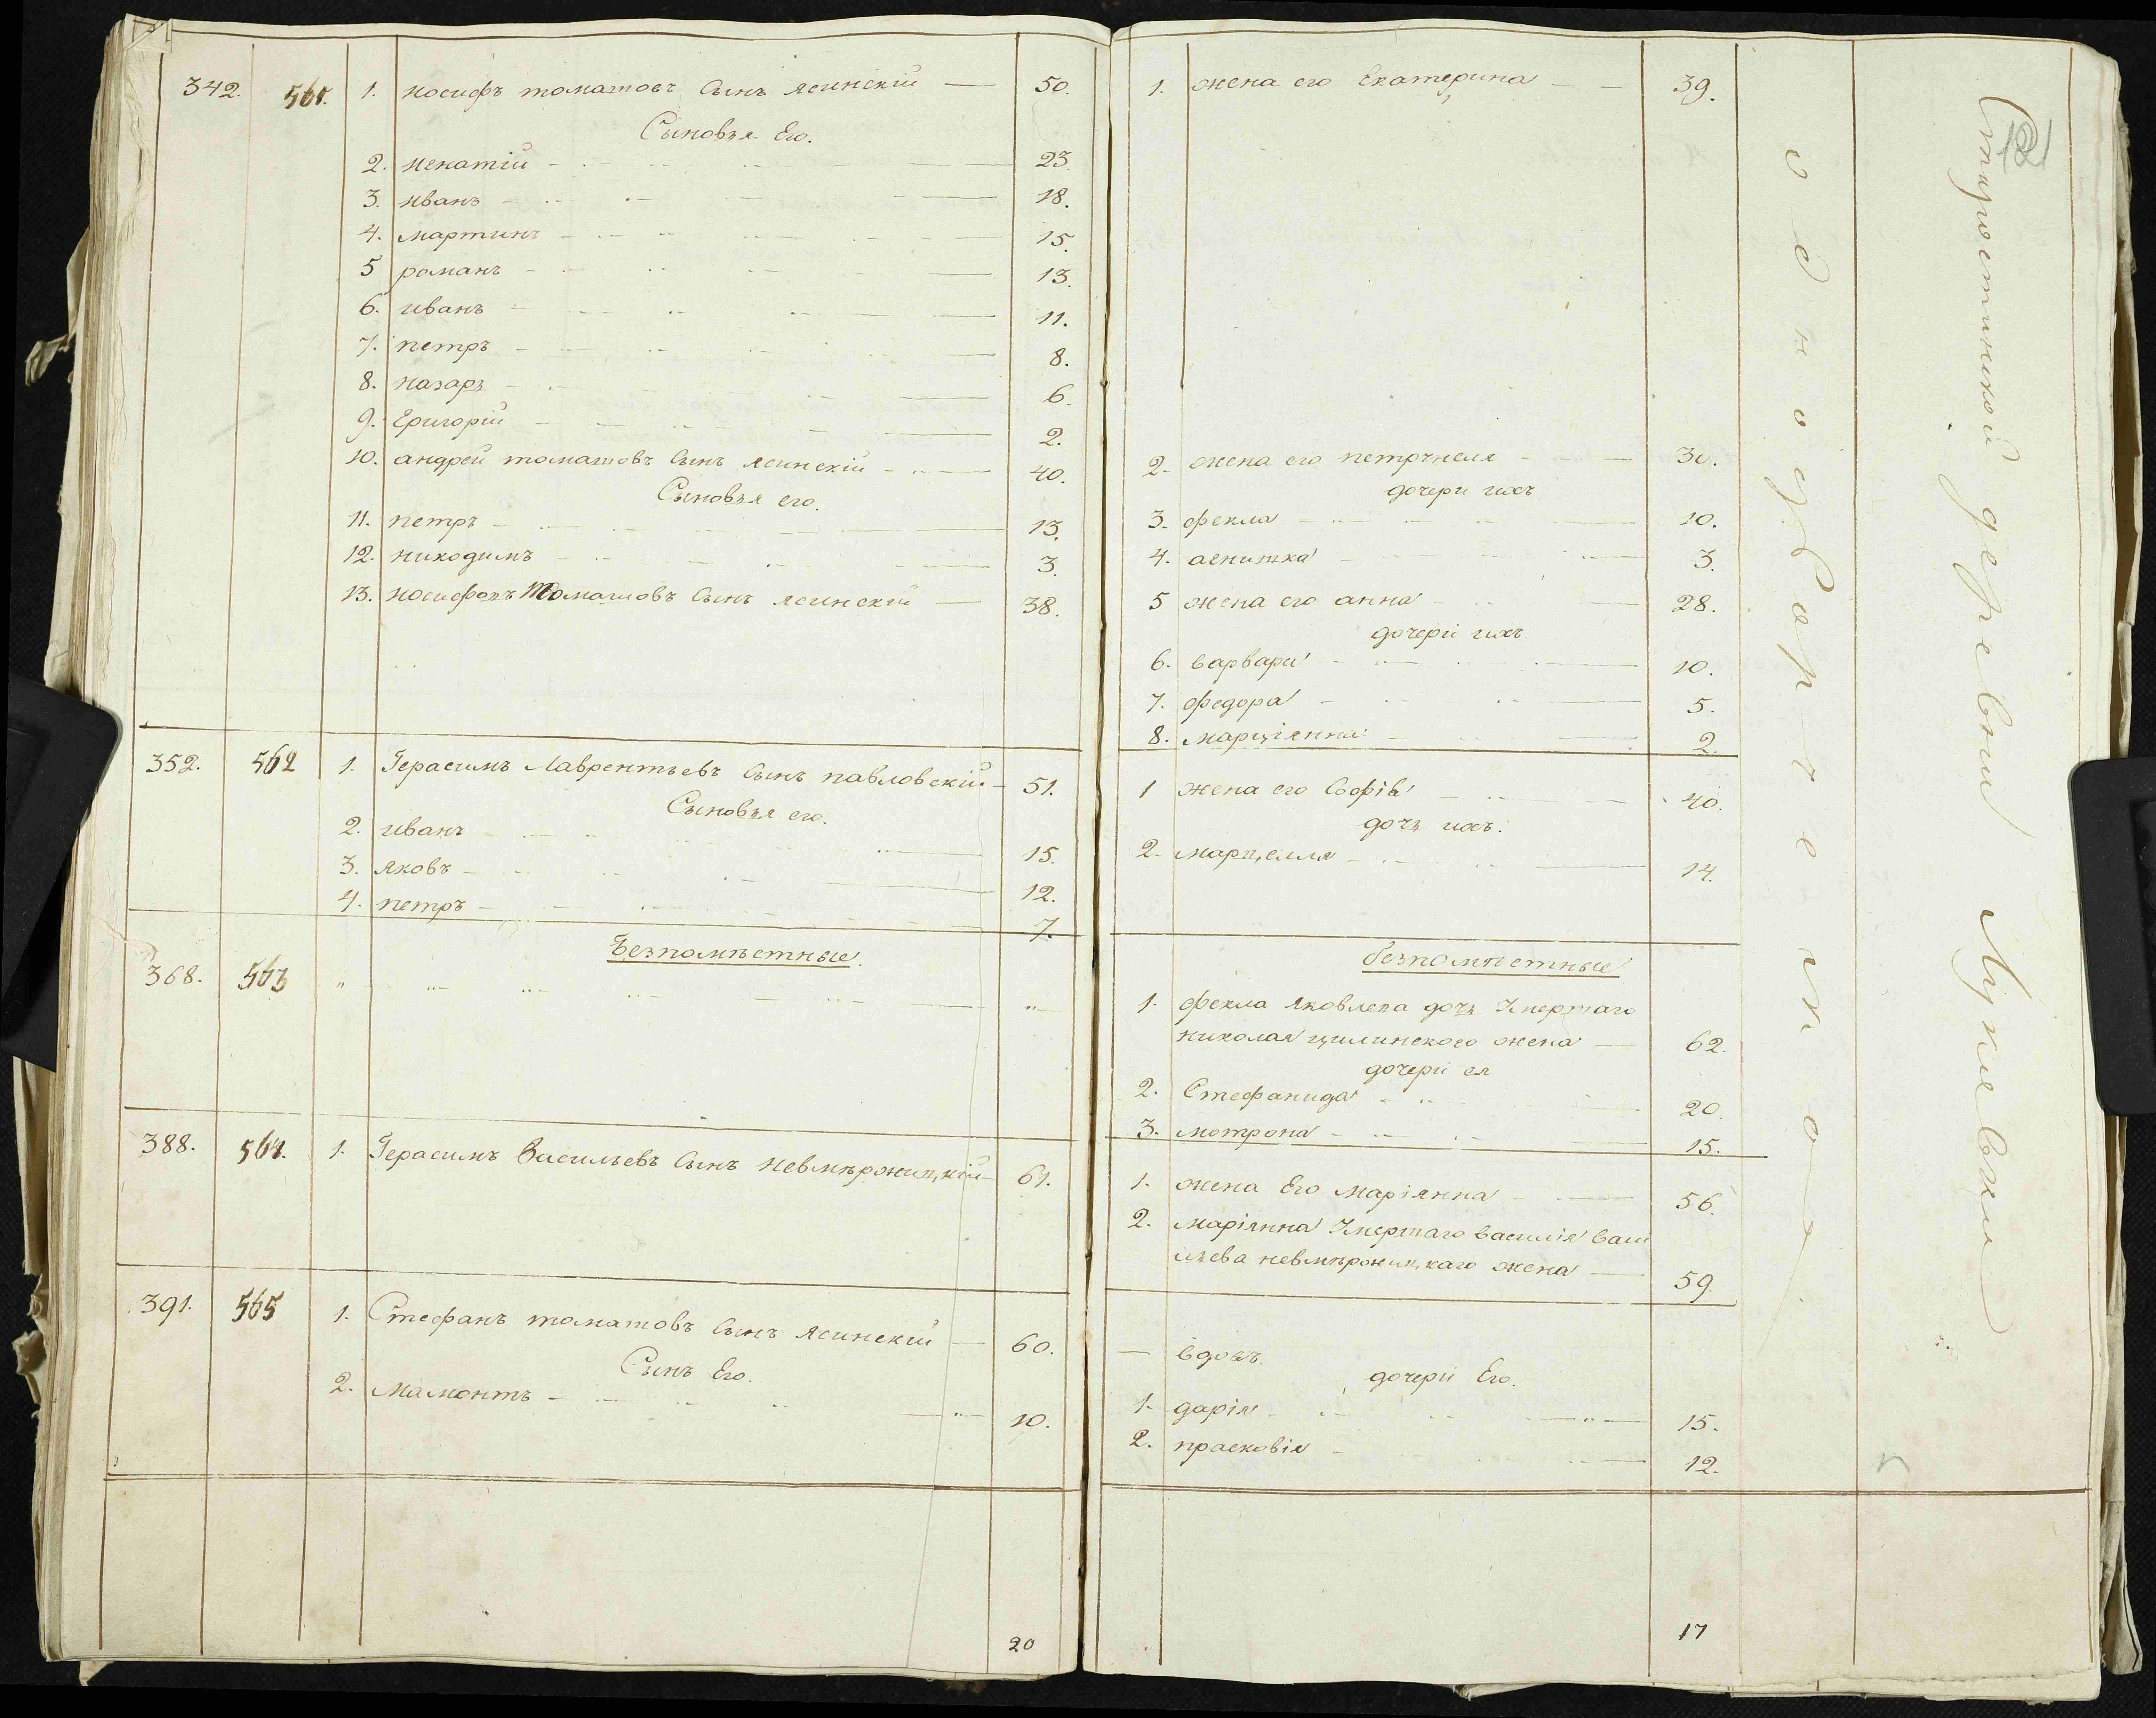 342. 561. 1. иосифъ томашовъ Сынъ ясинскій — 50.
Сыновья Его.
2. игнатій 23.
3. иванъ 18.
4. мартинъ 15.
5 романъ 13.
6. иванъ 11.
7. петръ 8.
8. назаръ 6.
9. Григорій 2.
10. андрей томашовъ Сынъ ясинскій 40.
Сыновья его.
11. петръ 13.
12. никодимъ 3.
13. Томашовъ Сынъ ясинскій — 38.
352. 562 1. Герасимъ Лаврентьевъ Сынъ павловскій — 51.
Сыновья его.
2. иванъ 15.
3. яковъ 12.
4. петръ 7.
Безпоместные.
368. 563 „ „
388. 564. 1. Герасимъ Васильевъ Сынъ невмѣржицкій 61.
391. 565 1. Стефанъ томашовъ Сынъ ясинскій — 60.
Сынъ Его.
2. Мамонтъ 10.
20
1. жена его Екатерина 39.
2. жена его петрунеля 30.
дочери ихъ
3. фекла 10.
4. 3.
5 жена его анна 28.
дочери ихъ
6. варвара 10.
7. федора 5.
8. марціянна 2.
1 жена его Софія 40.
дочь ихъ.
2. марцелля 14.
безпоместные
1. фекла Яковлева дочь Умершаго
николая жена — 62.
дочери ея
2. Стефанида 20.
3. мотрона 15.
1. жена Его маріянна 56.
2. маріянна Умершаго василія Васи
льева невмѣржицкаго жена — 59.
— вдовъ.
дочери Его.
1. дарія 15.
2. прасковія 12.
17
12